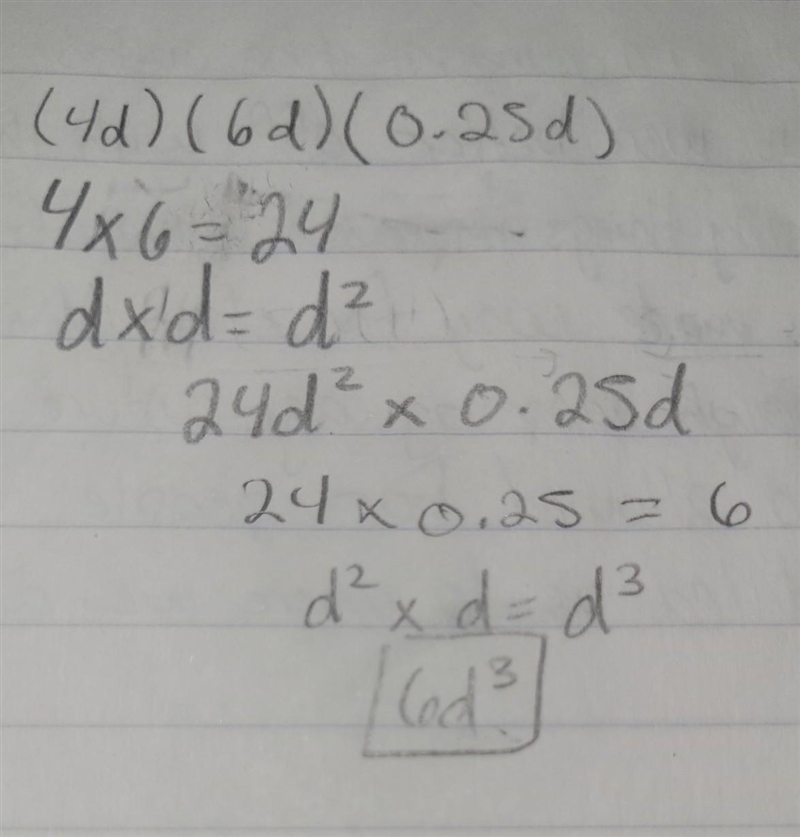 (4d)(6d)(0.25d)
4x6=24
dxd=d²
24d² x 0.25d
24 x 0.25 = 6
d² x d = d³
6d³